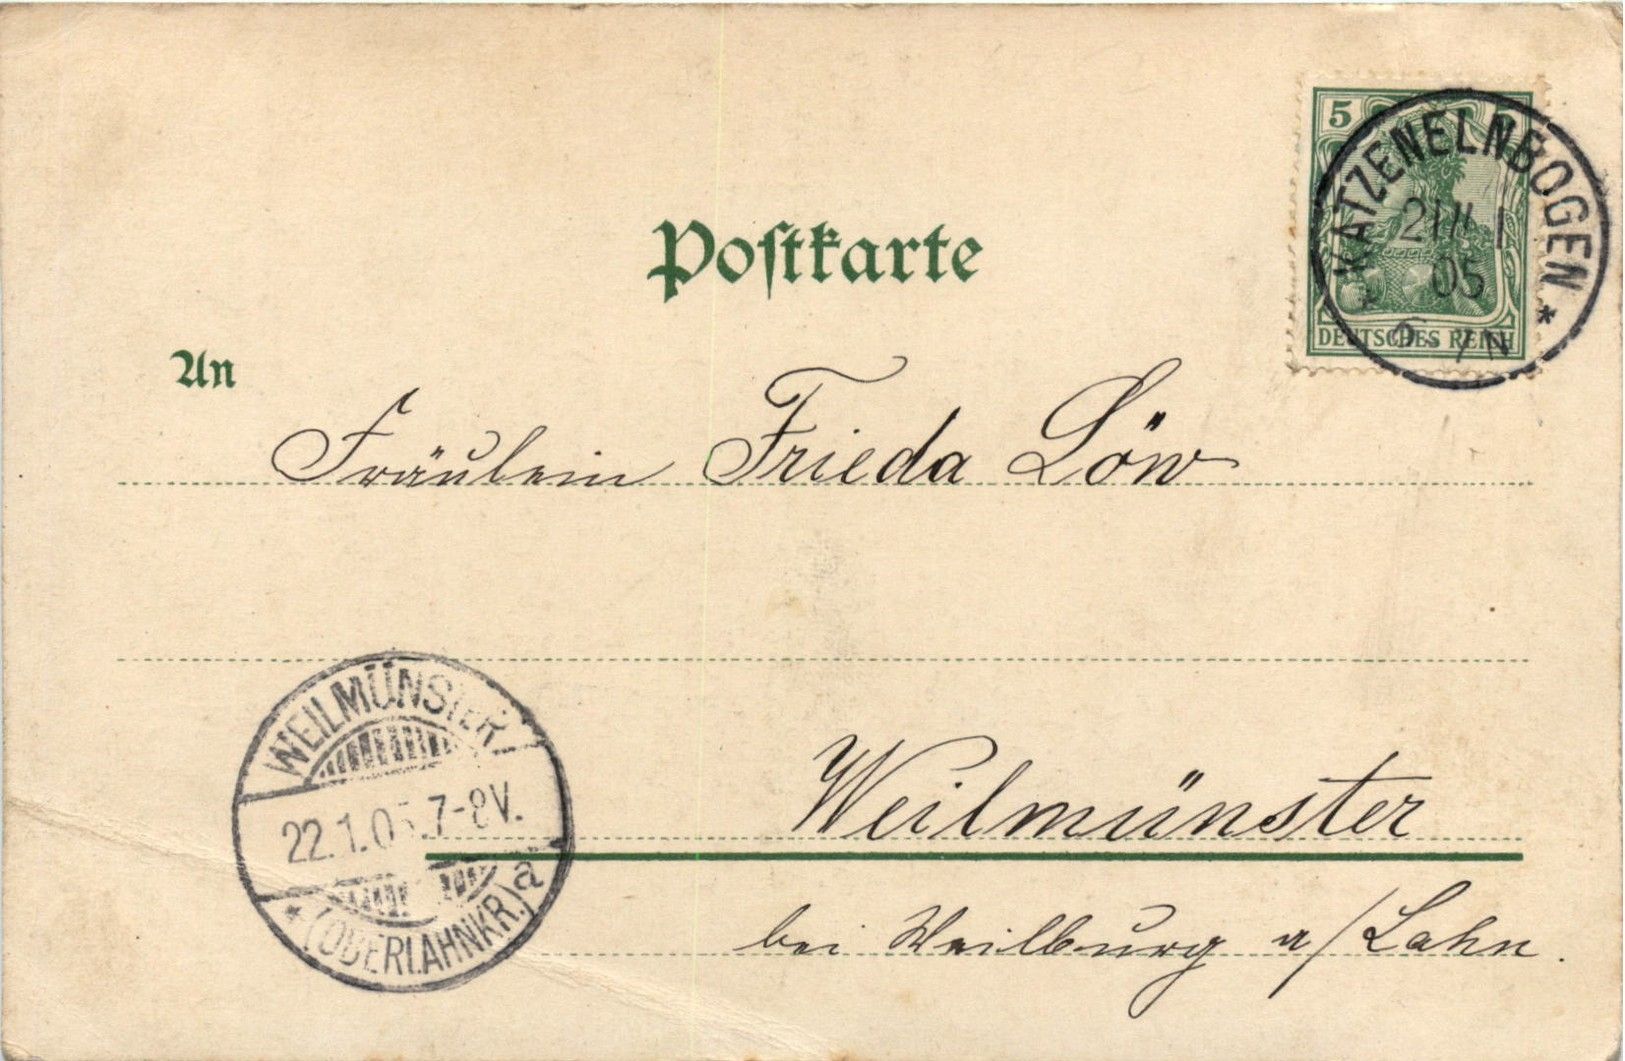 Postkarte
5 5
DEUTSCHES REICH
KATZENELNBOGEN
05
An
Fräulein Frieda Löw
Weilmünster
bei Weilburg a/Lahn.
WEILMÜNSTER
22.1.05.7-8V.
* (OBERLAHNKR.) a